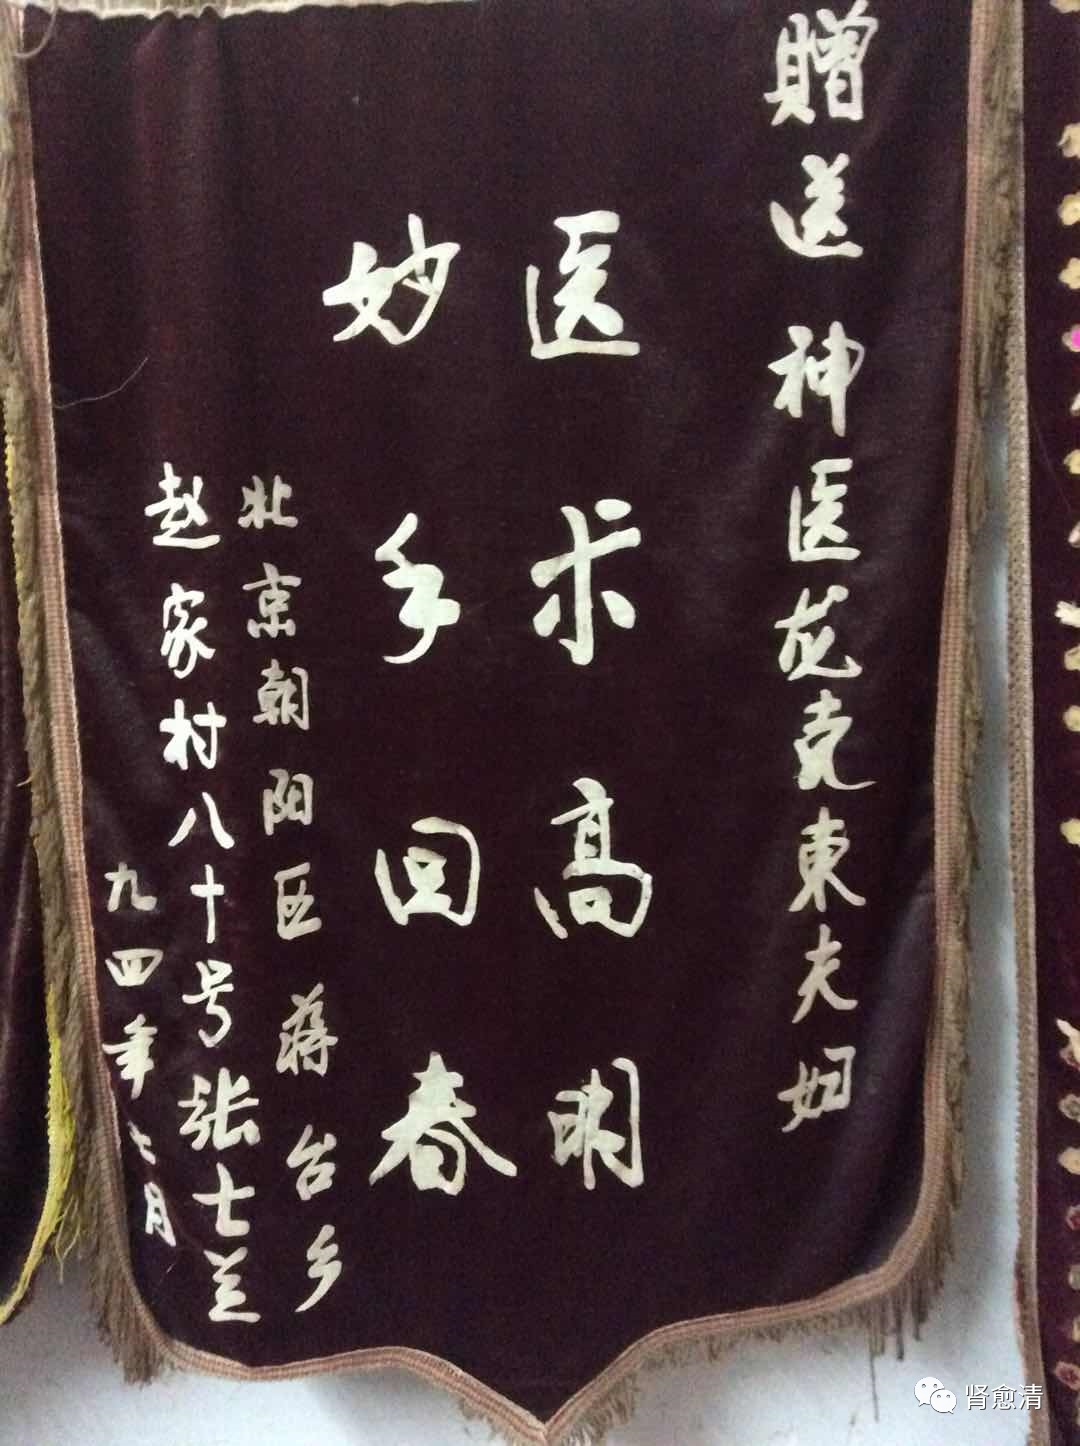 贈送神医龙克東夫妇
医术高明
妙手回春
北京朝阳区蒋台乡
赵家村八十号张士兰
九四年七月
肾愈清